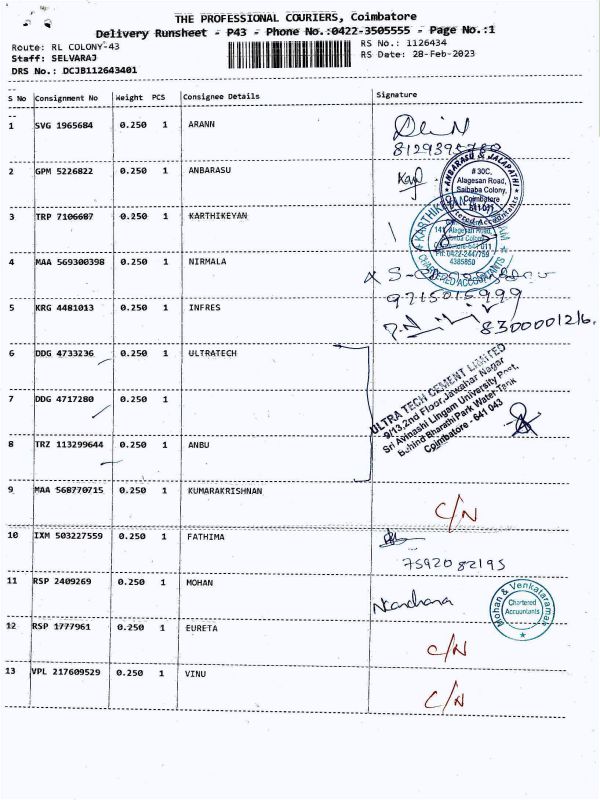 THE PROFESSIONAL COURIERS, Coimbatore
Delivery Runsheet - P43 - Phone No.:0422-3505555 - Page No.:1
Route: RL COLONY-43
RS No.: 1126434
Staff: SELVARAJ
RS Date: 28-Feb-2023
DRS No.: DCJB112643401
S No Consignment No Weight PCS Consignee Details Signature
1 SVG 1965684 0.250 1 ARANN
2 GPM 5226822 0.250 1 ANBARASU
ANBARASU & JALAPATHI
# 30C,
Alagesan Road,
Saibaba Colony,
Coimbatore
641 011
Chartered Accountants
3 TRP 7106607 0.250 1 KARTHIKEYAN
141, Alagesan Road,
PH: 0422-2447759
4385850
CHARTERED ACCOUNTANTS
4 MAA 569300398 0.250 1 NIRMALA
9715015999
5 KRG 4481013 0.250 1 INFRES
8300001216.
6 DDG 4733236 0.250 1 ULTRATECH
ULTRA TECH CEMENT LIMITED
9/13, 2nd Floor, Jawahar Nagar
Sri Avinashi Lingam University Post,
behind Bharathi Park Water Tank
Coimbatore - 641 043
7 DDG 4717280 0.250 1
8 TRZ 113299644 0.250 1 ANBU
9 MAA 568770715 0.250 1 KUMARAKRISHNAN
C/N
10 IXM 503227559 0.250 1 FATHIMA
7592082195
11 RSP 2409269 0.250 1 MOHAN
Mohan & Venkataraman
Chartered
Accountants
12 RSP 1777961 0.250 1 EURETA
C/N
13 VPL 217609529 0.250 1 VINU
C/N